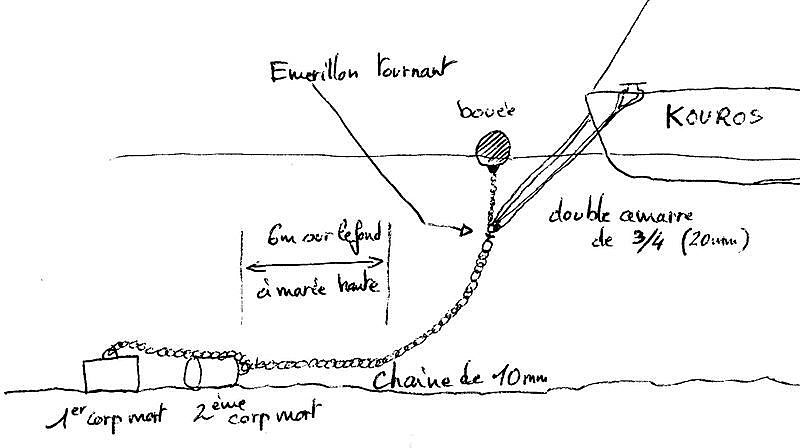 Emerillon tournant
bouée
KOUROS
double amarre
de 3/4 (20mm)
6m sur le fond
à marée haute
chaîne de 10mm
1er corp mort
2ème
corp mort